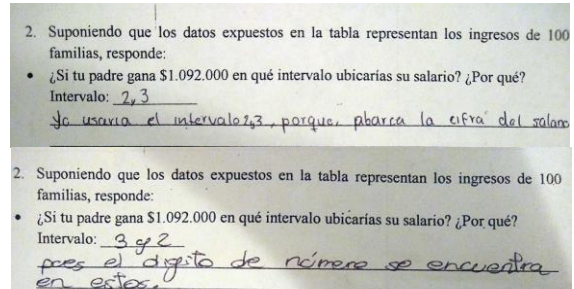 2. Suponiendo que los datos expuestos en la tabla representan los ingresos de 100
familias, responde:
• ¿Si tu padre gana $1.092.000 en qué intervalo ubicarías su salario? ¿Por qué?
Intervalo: 2,3
Yo usaria el intervalo 2,3, porque, abarca la cifra del salario
2. Suponiendo que los datos expuestos en la tabla representan los ingresos de 100
familias, responde:
• ¿Si tu padre gana $1.092.000 en qué intervalo ubicarías su salario? ¿Por qué?
Intervalo: 3 y 2
pues el digito de número se encuentra
en estos.